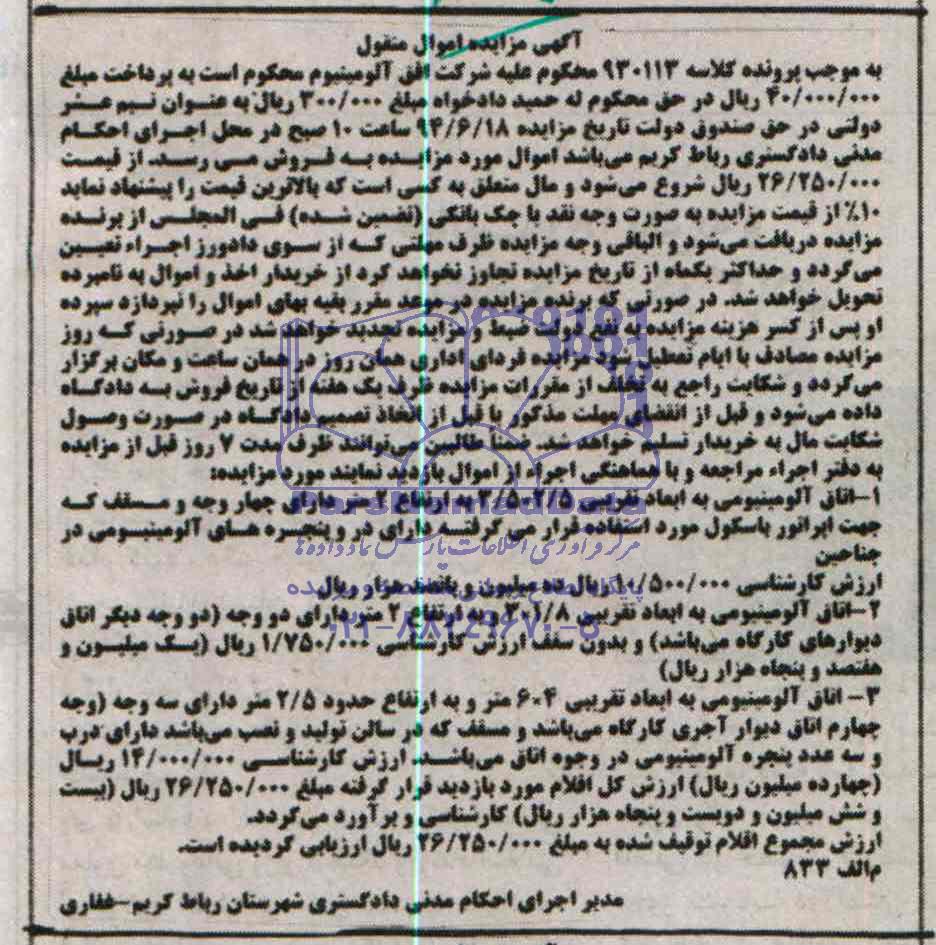 آگهی مزایده اموال منقول
به موجب پرونده کلاسه ۹۳۰۱۱۳ محکوم علیه شرکت افق آلومینیوم محکوم است به پرداخت مبلغ
۴۰/۰۰۰/۰۰۰ ریال در حق محکوم له حمید دادخواه مبلغ ۳۰۰/۰۰۰ ریال به عنوان نیم عشر
دولتی در حق صندوق دولت تاریخ مزایده ۹۴/۶/۱۸ ساعت ۱۰ صبح در محل اجرای احکام
مدنی دادگستری رباط کریم می‌باشد اموال مورد مزایده به فروش می رسد. از قیمت
۲۶/۲۵۰/۰۰۰ ریال شروع می‌شود و مال متعلق به کسی است که بالاترین قیمت را پیشنهاد نماید
۱۰٪ از قیمت مزایده به صورت وجه نقد یا چک بانکی (تضمین شده) فی المجلس از برنده
مزایده دریافت می‌شود و الباقی وجه مزایده ظرف مهلتی که از سوی دادورز اجراء تعیین
می‌گردد و حداکثر یکماه از تاریخ مزایده تجاوز نخواهد کرد از خریدار اخذ و اموال به نامبرده
تحویل خواهد شد. در صورتی که برنده مزایده در موعد مقرر بقیه بهای اموال را نپردازد سپرده
او پس از کسر هزینه مزایده به نفع دولت ضبط و مزایده تجدید خواهد شد در صورتی که روز
مزایده مصادف با ایام تعطیل شود مزایده فردای اداری همان روز در همان ساعت و مکان برگزار
می‌گردد و شکایت راجع به تخلف از مقررات مزایده ظرف یک هفته از تاریخ فروش به دادگاه
داده می‌شود و قبل از انقضای مهلت مذکور یا قبل از اتخاذ تصمیم دادگاه در صورت وصول
شکایت مال به خریدار تسلیم نخواهد شد. ضمناً طالبین می‌توانند ظرف مدت ۷ روز قبل از مزایده
به دفتر اجراء مراجعه و با هماهنگی اجراء از اموال بازدید نمایند مورد مزایده:
۱-اتاق آلومینیومی به ابعاد تقریبی ۲/۵-۳/۵ به ارتفاع ۲ متر دارای چهار وجه و مسقف که
جهت اپراتور باسکول مورد استفاده قرار می گرفته دارای در و پنجره های آلومینیومی در
جناحین
ارزش کارشناسی ۱۰/۵۰۰/۰۰۰ ریال ده میلیون و پانصد هزار ریال
۲-اتاق آلومینیومی به ابعاد تقریبی ۳۰۱/۸ و به ارتفاع ۲ متر دارای دو وجه (دو وجه دیگر اتاق
دیوارهای کارگاه می‌باشد) و بدون سقف ارزش کارشناسی ۱/۷۵۰/۰۰۰ ریال (یک میلیون و
هفتصد و پنجاه هزار ریال)
۳- اتاق آلومینیومی به ابعاد تقریبی ۶۰۴ متر و به ارتفاع حدود ۲/۵ متر دارای سه وجه (وجه
چهارم اتاق دیوار آجری کارگاه می‌باشد و مسقف که در سالن تولید و نصب می‌باشد دارای درب
و سه عدد پنجره آلومینیومی در وجوه اتاق می‌باشد. ارزش کارشناسی ۱۴/۰۰۰/۰۰۰ ریال
(چهارده میلیون ریال) ارزش کل اقلام مورد بازدید قرار گرفته مبلغ ۲۶/۲۵۰/۰۰۰ ریال (بیست
و شش میلیون و دویست و پنجاه هزار ریال) کارشناسی و برآورد می‌گردد.
ارزش مجموع اقلام توقیف شده به مبلغ ۲۶/۲۵۰/۰۰۰ ریال ارزیابی گردیده است.
م‌الف ۸۳۳
مدیر اجرای احکام مدنی دادگستری شهرستان رباط کریم-غفاری